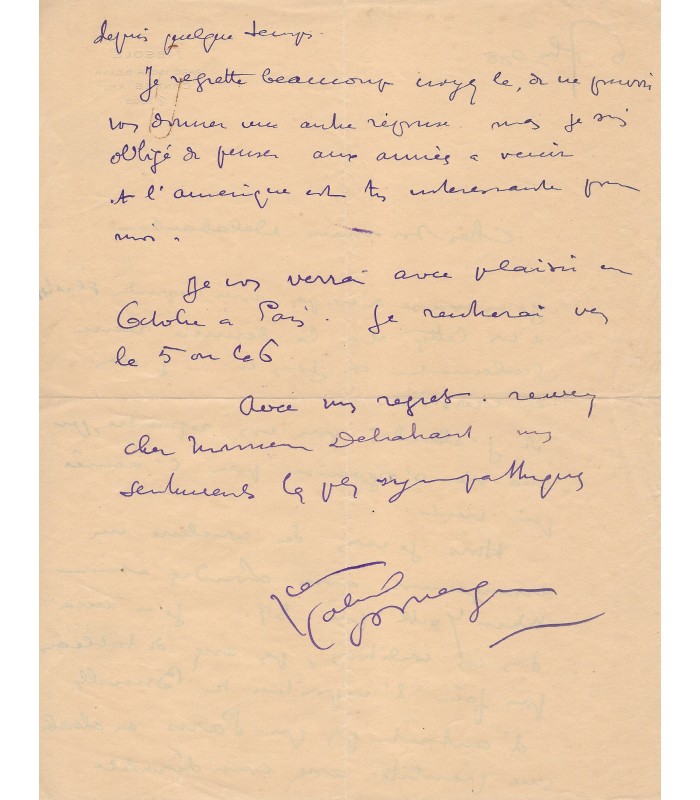 depuis quelque temps.
Je regrette beaucoup croyez le, de ne pouvoir
vous donner une autre réponse. mais je suis
obligé de penser aux années a venir
et l'amérique est très intéressante pour
moi.
Je vous verrai avec plaisir en
Octobre a Paris. Je rentrerai vers
le 5 ou le 6
Avec mes regrets. recevez
cher Monsieur Delahaut mes
sentiments les plus sympathiques